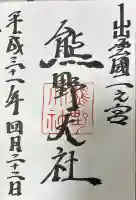 出雲國一之宮
熊野大社
平成三十一年四月二十二日